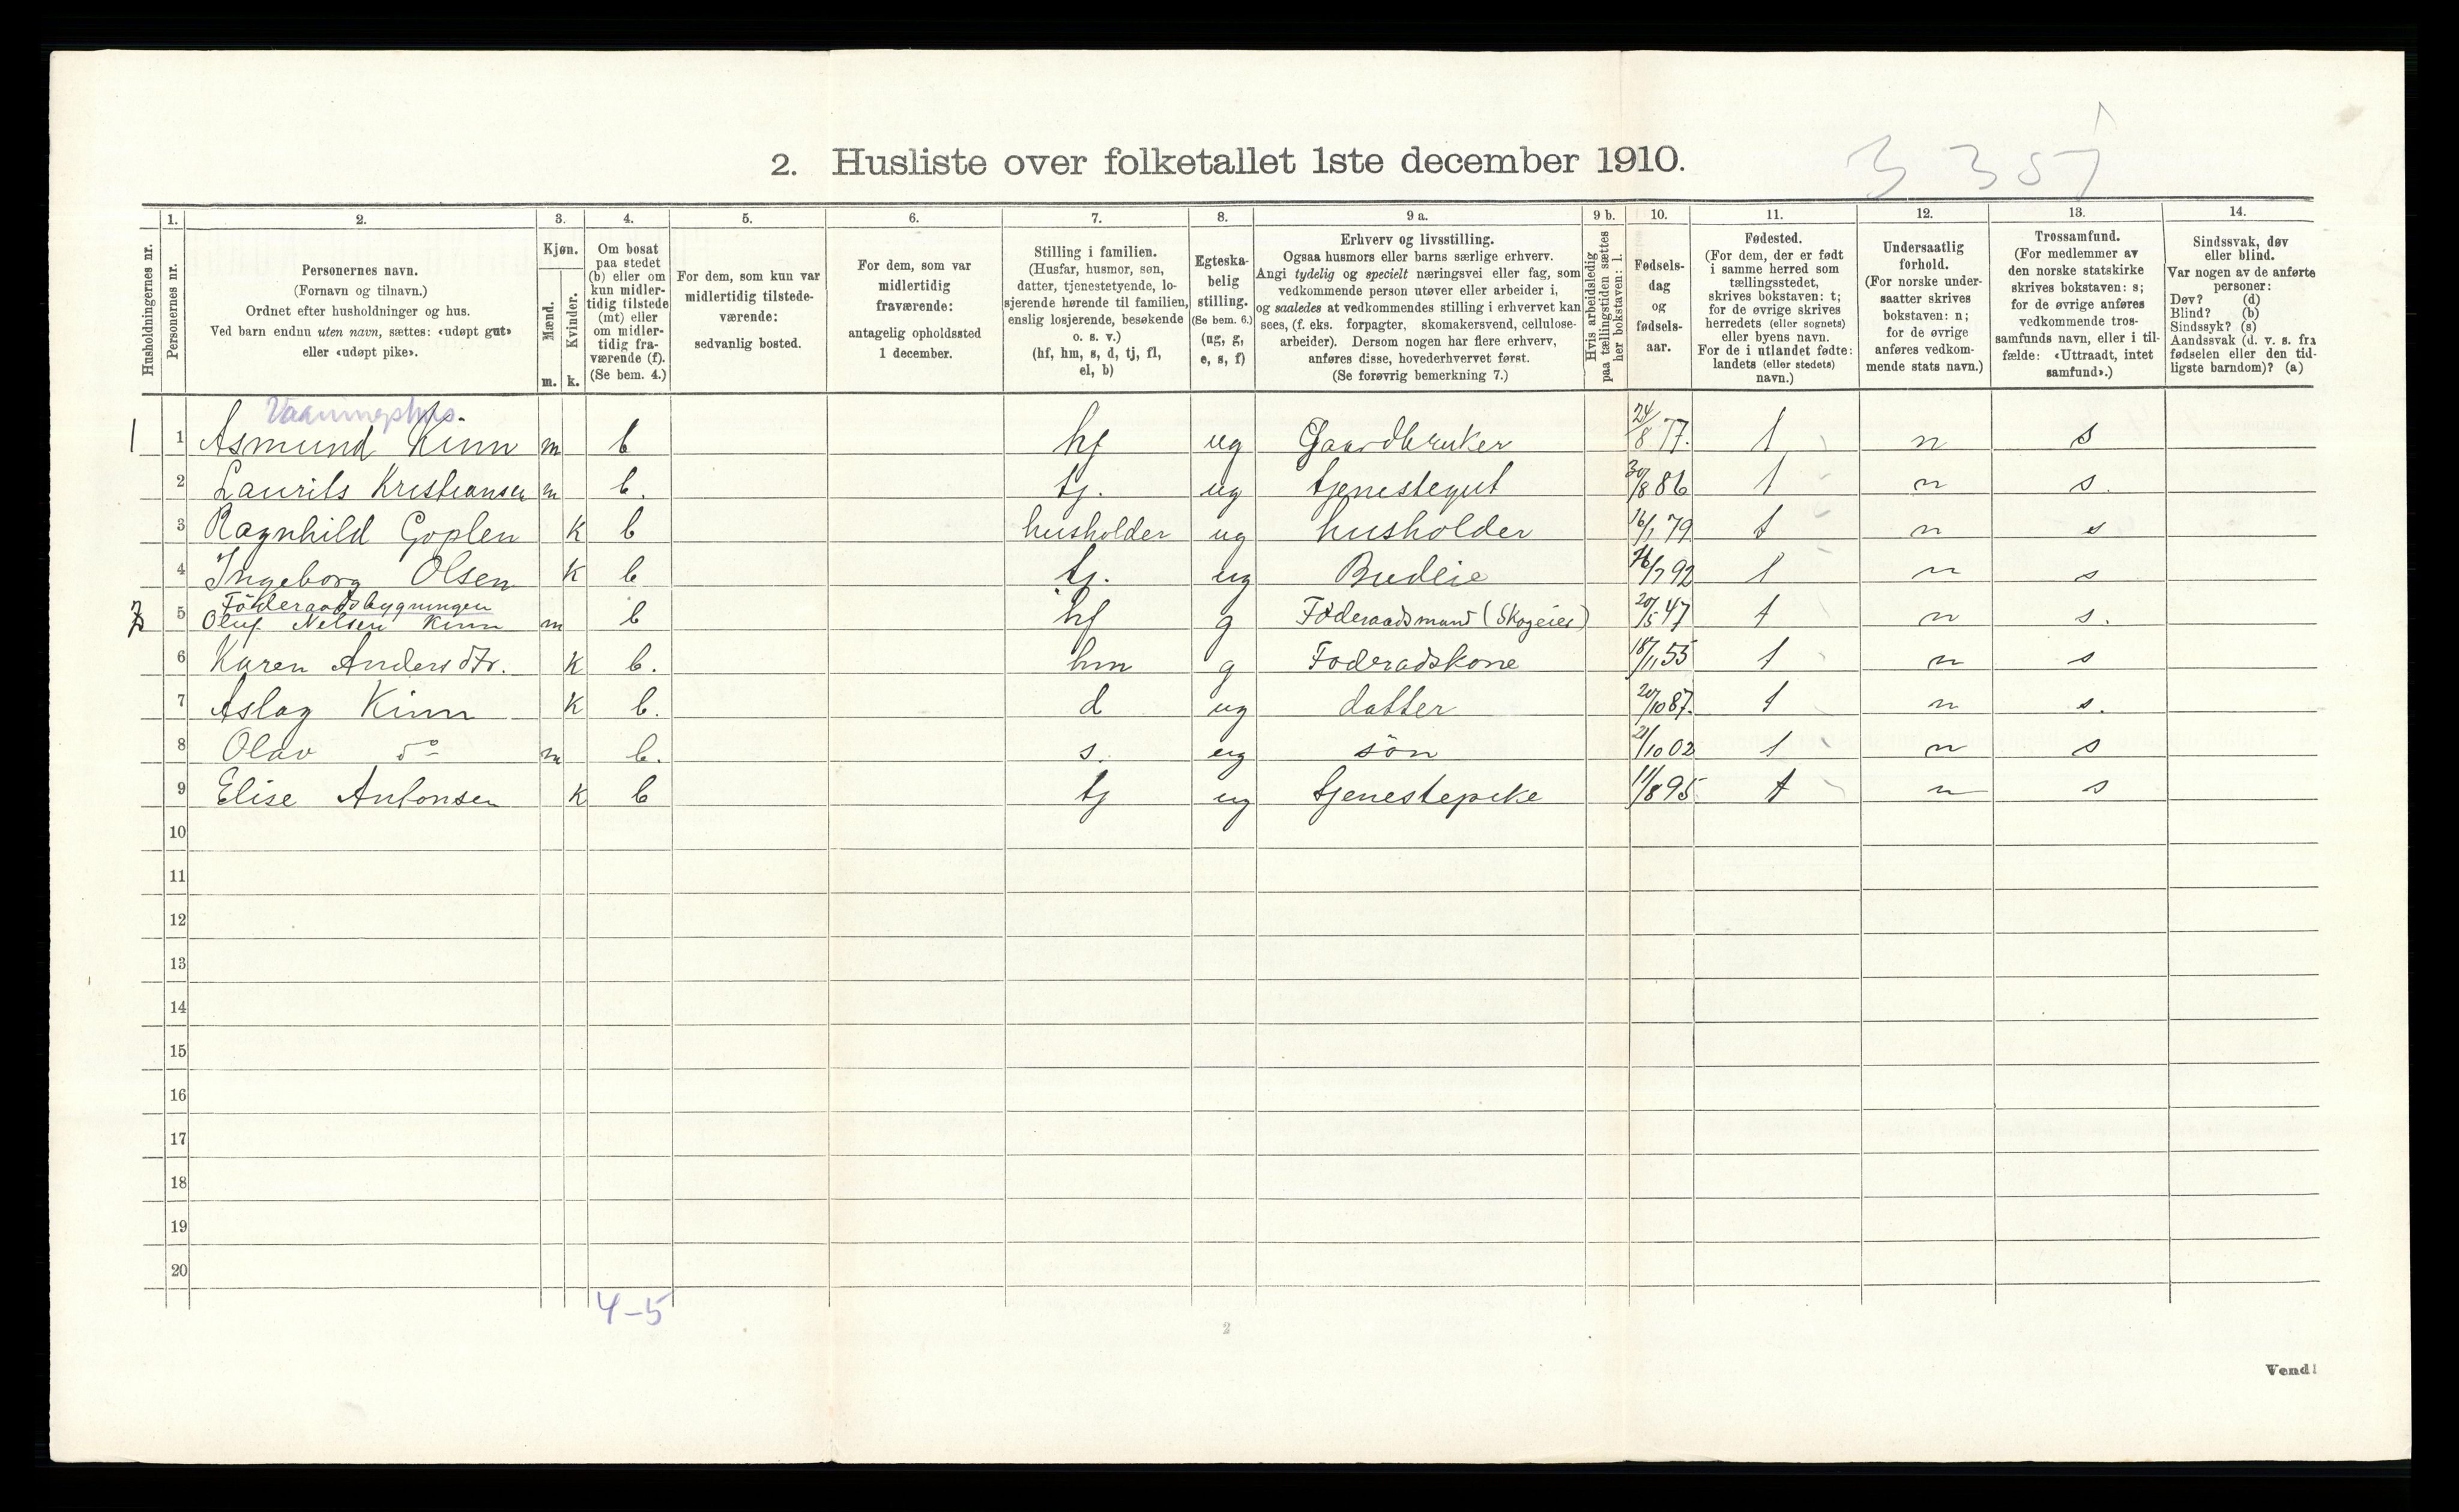 2. Husliste over folketallet 1ste december 1910.
1. 2. 3. 4. 5. 6. 7. 8. 9 a. 9 b. 10. 11. 12. 13. 14.
Husholdningernes nr.
Personernes nr.
Personernes navn.
(Fornavn og tilnavn.)
Ordnet efter husholdninger og hus.
Ved barn endnu uten navn, sættes: «udøpt gut»
eller «udøpt pike».
Kjøn.
Mænd.
Kvinder.
m. k.
Om bosat
paa stedet
(b) eller om
kun midler-
tidig tilstede
(mt) eller
om midler-
tidig fra-
værende (f).
(Se bem. 4.)
For dem, som kun var
midlertidig tilstede-
værende:
sedvanlig bosted.
For dem, som var
midlertidig
fraværende:
antagelig opholdssted
1 december.
Stilling i familien.
(Husfar, husmor, søn,
datter, tjenestetyende, lo-
sjerende hørende til familien,
enslig losjerende, besøkende
o. s. v.)
(hf, hm, s, d, tj, fl,
el, b)
Egteska-
belig
stilling.
(Se bem. 6.)
(ug, g,
e, s, f)
Erhverv og livsstilling.
Ogsaa husmors eller barns særlige erhverv.
Angi tydelig og specielt næringsvei eller fag, som
vedkommende person utøver eller arbeider i,
og saaledes at vedkommendes stilling i erhvervet kan
sees, (f. eks. forpagter, skomakersvend, cellulose-
arbeider). Dersom nogen har flere erhverv,
anføres disse, hovederhvervet først.
(Se forøvrig bemerkning 7.)
Hvis arbeidsledig
paa tællingstiden sættes
her bokstaven: l.
Fødsels-
dag
og
fødsels-
aar.
Fødested.
(For dem, der er født
i samme herred som
tællingsstedet,
skrives bokstaven: t;
for de øvrige skrives
herredets (eller sognets)
eller byens navn.
For de i utlandet fødte:
landets (eller stedets)
navn.)
Undersaatlig
forhold.
(For norske under-
saatter skrives
bokstaven: n;
for de øvrige
anføres vedkom-
mende stats navn.)
Trossamfund.
(For medlemmer av
den norske statskirke
skrives bokstaven: s;
for de øvrige anføres
vedkommende tros-
samfunds navn, eller i til-
fælde: «Uttraadt, intet
samfund».)
Sindssvak, døv
eller blind.
Var nogen av de anførte
personer:
Døv? (d)
Blind? (b)
Sindssyk? (s)
Aandssvak (d. v. s. fra
fødselen eller den tid-
ligste barndom)? (a)
Vaaningshus.
1 1 Asmund Kinn m b hf ug Gaardbruker 24/8 77. t n s
2 Laurits Kristiansen m b. tj. ug tjenestegut 30/8 86 t n s.
3 Ragnhild Goplen k b husholder ug husholder 16/1 79 t n s
4 Ingeborg Olsen k b tj. ug Budeie 16/7 92 t n s
Föderaadsbygningen
2 5 Oluf Nelsen Kinn m b hf g Föderaadsmand (Skogeier) 20/5 47 t n s.
6 Karen Andersdtr. k b. hm g Foderadskone 18/11 55 t n s
7 Aslag Kinn k b. d ug datter 20/10 87. t n s.
8 Olav do m b. s. ug sön 21/10 02 t n s
9 Elise Antonsen k b tj ug tjenestepike 11/8 95 t n s
10
11
12
13
14
15
16
17
18
19
20
4-5
2
Vend!